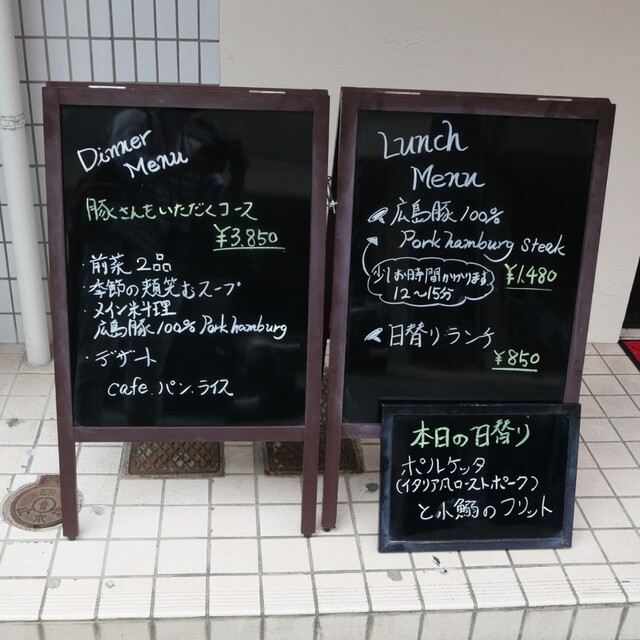 Dinner
Menu
豚さんをいただくコース
¥3,850
・前菜 2品
・季節の頬笑むスープ
・メイン料理
広島豚100% Pork hamburg
・デザート
cafe.パン.ライス
Lunch
Menu
広島豚100%
Pork hamburg steak
少しお時間かかります
12〜15分
¥1,480
日替りランチ
¥850
本日の日替り
ポルケッタ
(イタリア風ローストポーク)
と小鰯のフリット